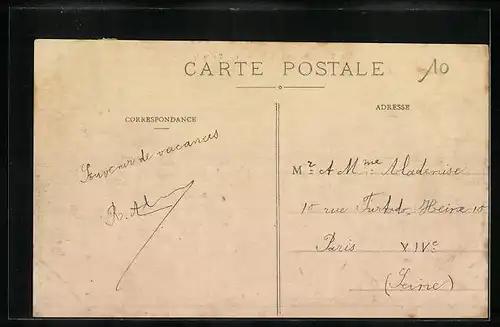 CARTE POSTALE
10
CORRESPONDANCE
ADRESSE
Souvenir de vacances
R. Ad
Mr et Mme Aladenise
10 rue Furtado Heira 10
Paris XIVe
(Seine)